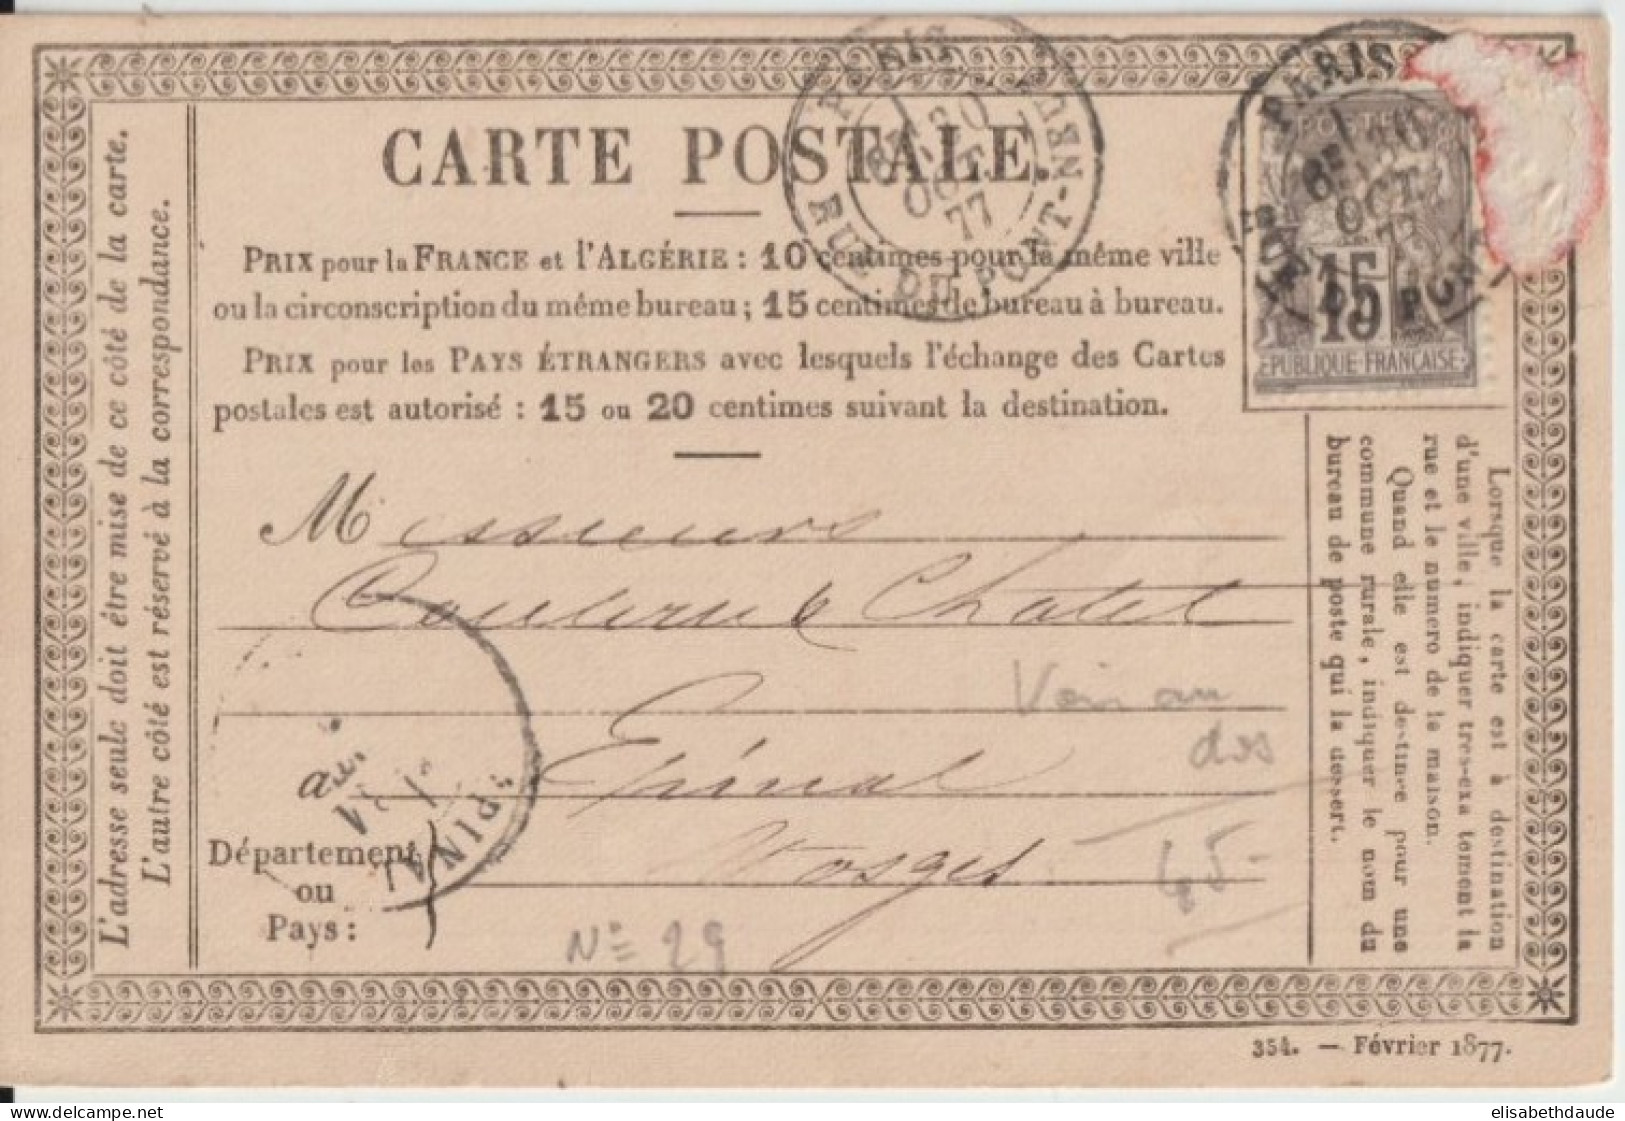 CARTE POSTALE.
PRIX pour la FRANCE et l'ALGÉRIE : 10 centimes pour la même ville
ou la circonscription du même bureau ; 15 centimes de bureau à bureau.
PRIX pour les PAYS ÉTRANGERS avec lesquels l'échange des Cartes
postales est autorisé : 15 ou 20 centimes suivant la destination.
PARIS
RUE DU PONT-NEUF
OCT
77
PARIS
RUE DU PONT
OCT
77
POSTE
15
REPUBLIQUE-FRANÇAISE
L'adresse seule doit être mise de ce côté de la carte.
L'autre côté est réservé à la correspondance.
Messieurs
& Chatel
Voir au
dos
à Epinal
Département
ou
Pays :
Vosges
45-
EPINAL
Nº 29
Lorsque la carte est à destination
d'une ville, indiquer tres-exa tement la
rue et le numero de la maison.
Quand elle est destinée pour une
commune rurale, indiquer le nom du
bureau de poste qui la dessert.
354. — Février 1877.
elisabethdaude